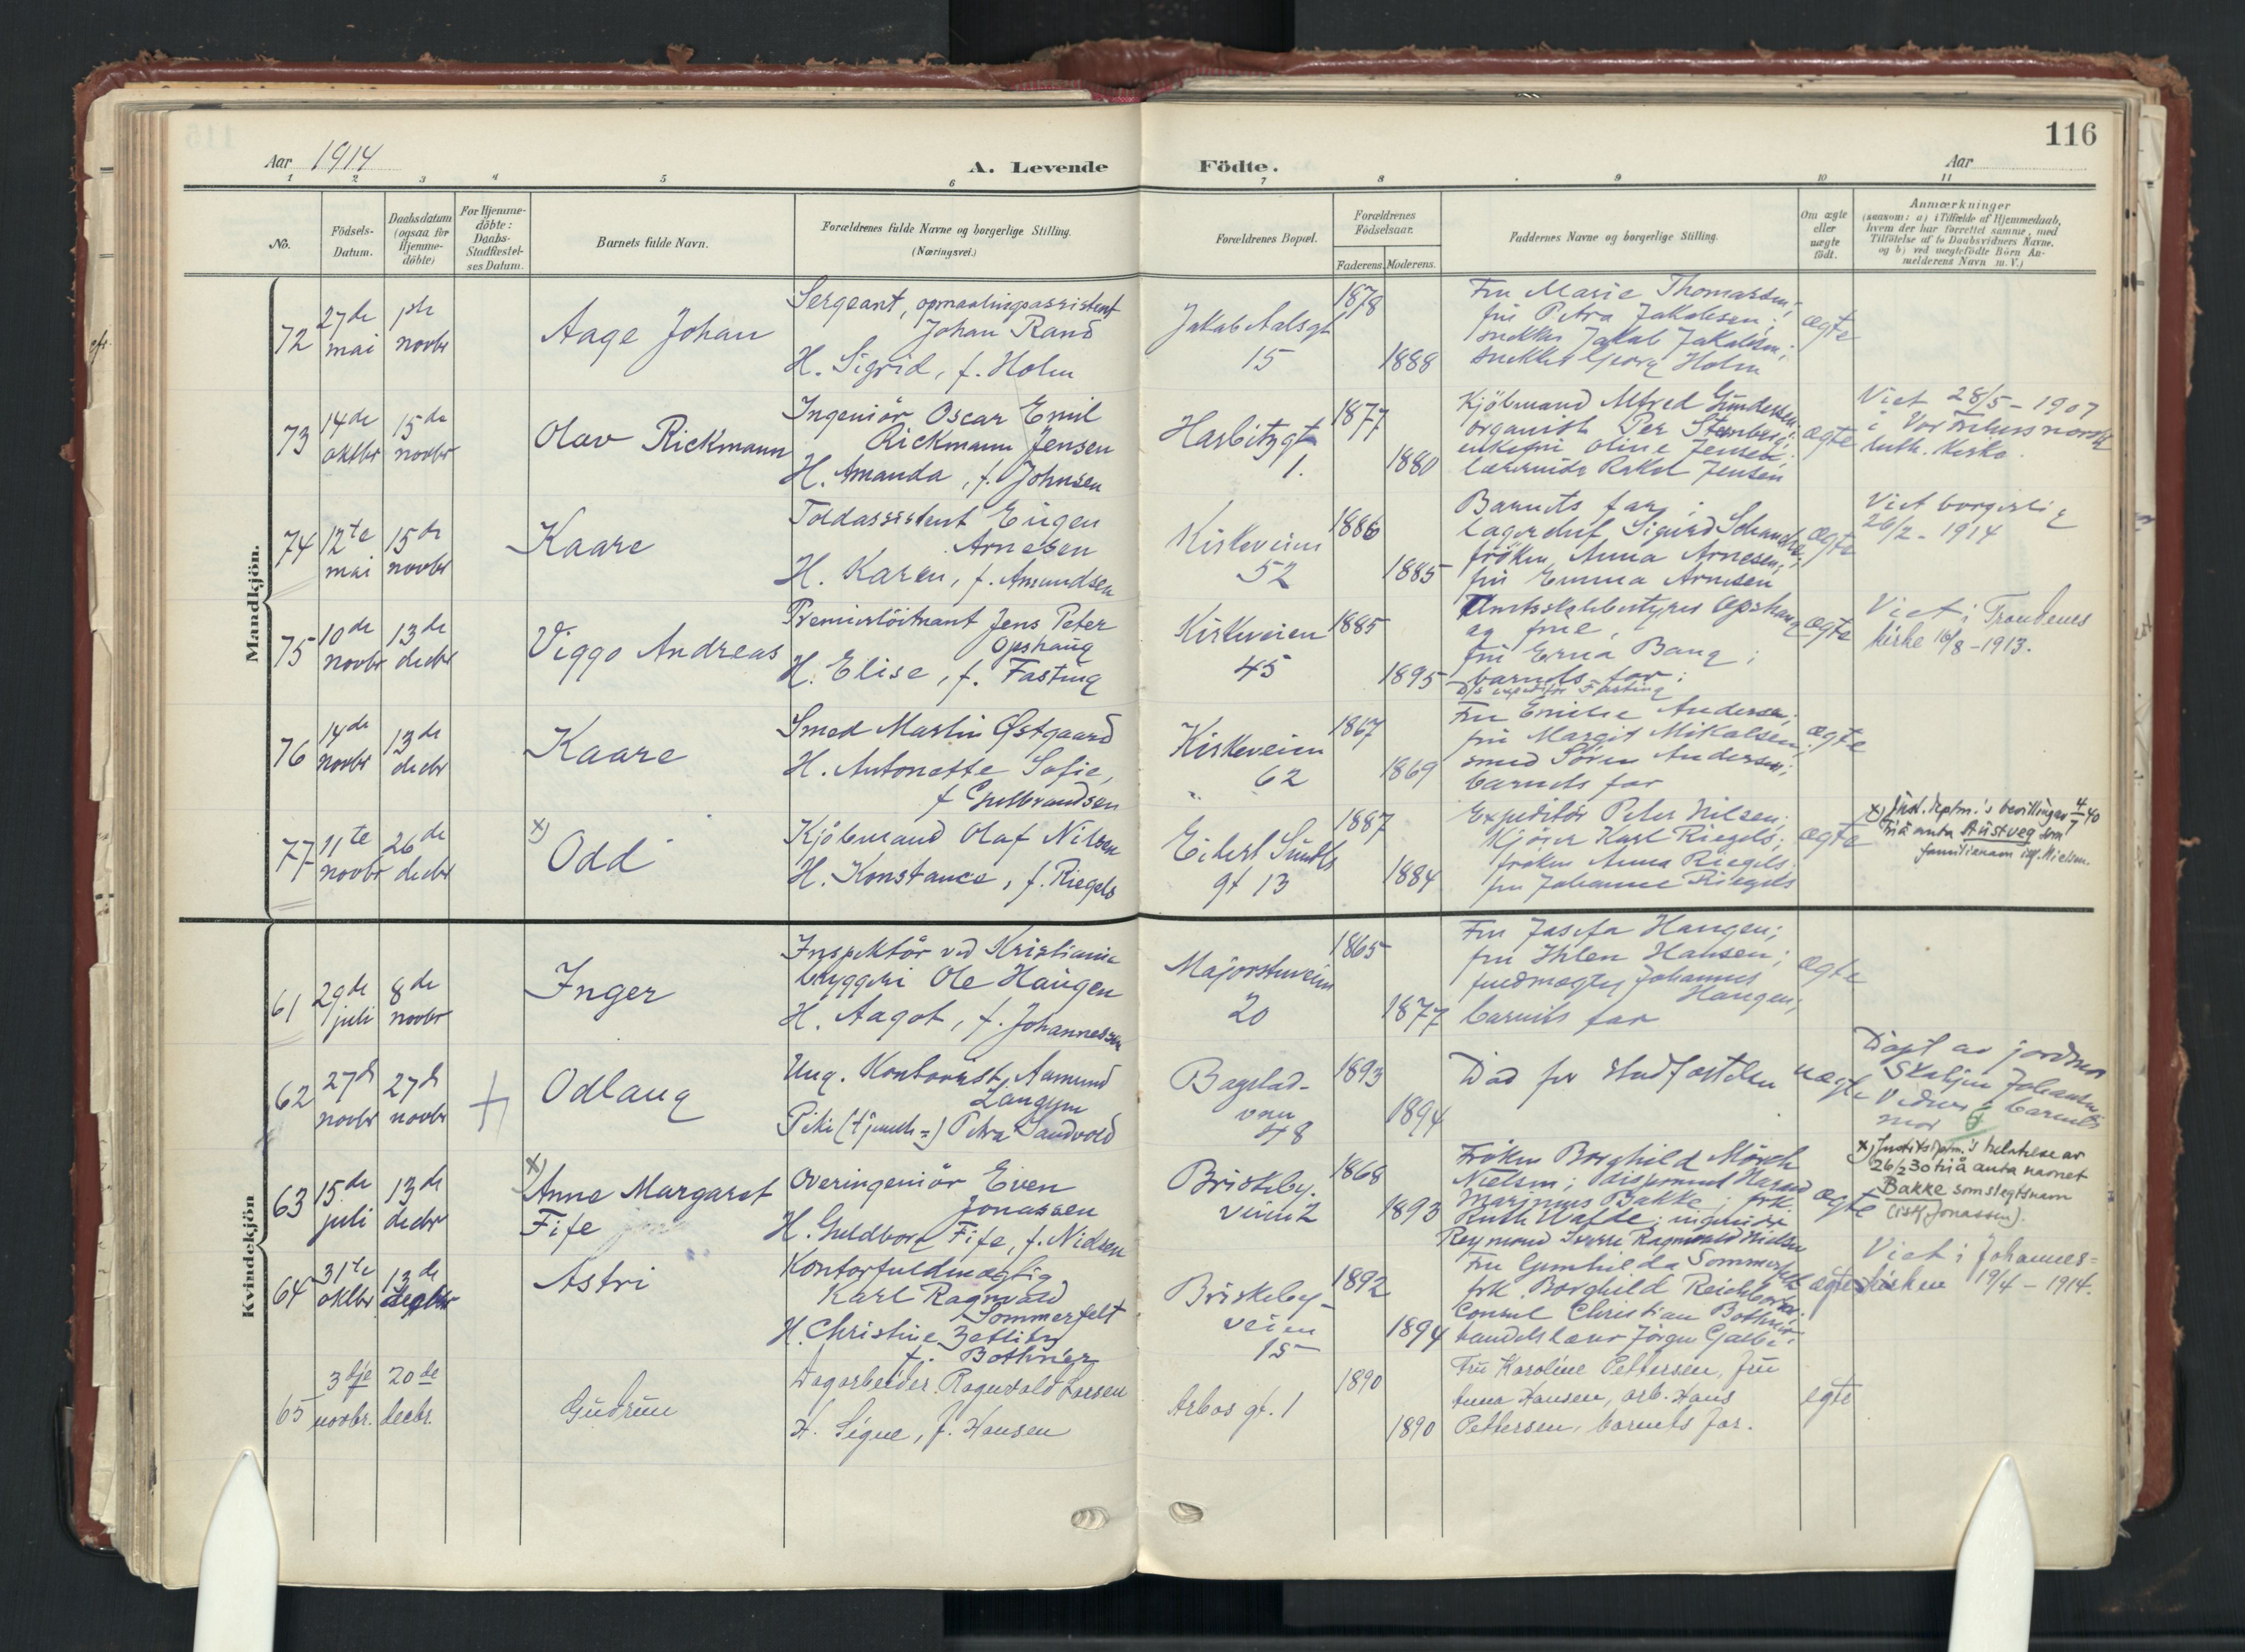 116
Aar 1914
A. Levende Födte.
Aar
1 2 3 4 5 6 7 8 9 10 11
No.
Födsels-Datum.
Daabsdatum (ogsaa for Hjemme-döbte)
For Hjemme-döbte: Daabs-Stadfæstel-ses Datum.
Barnets fulde Navn.
Forældrenes fulde Navne og borgerlige Stilling.
(Næringsvei.)
Forældrenes Bopæl.
Forældrenes Födselsaar.
Faderens. Moderens.
Faddernes Navne og borgerlige Stilling.
Om ægte eller uægte födt.
Anmærkninger
(saasom: a) i Tilfælde af Hjemmedaab,
hvem der har forrettet samme, med
Tilföielse af to Daabsvidners Navne,
og b) ved uægtefödte Börn An-
melderens Navn m. V.)
Mandkjön.
72
27de mai
1ste novbr
Aage Johan
Sergeant, opmaalingsassistent
Johan Rand
H. Sigrid, f. Holm
Jakob Aalsgt
15
1878
1888
Fru Marie Thomassen;
fru Petra Jakobsen;
snekker Jakob Jakobsen;
snekker Georg Holm
ægte
73
14de oktbr
15de novbr
Olav Rickmann
Ingeniör Oscar Emil
Rickmann Jensen
H. Amanda, f. Johnsen
Harbitzgt
1.
1877
1880
Kjöbmand Alfred Gundersen;
organist Per Steenberg;
enkefru Oline Jensen;
lærerinde Rakel Jensen
ægte
Viet 28/5 - 1907
i Vor Frelsers norsk
luth. Kirke.
74
12te mai
15de novbr
Kaare
Toldassistent Eugen
Arnesen
H. Karen, f. Amundsen
Kirkeveien
52
1886
1885
Barnets far;
lagerchef Sigurd Schanche;
fröken Anna Arnesen;
fru Emma Arnesen
ægte
Viet borgerlig
26/2 - 1914
75
10de novbr
13de decbr
Viggo Andreas
Premierlöitnant Jens Peter
Opshaug
H. Elise, f. Fasting
Kirkeveien
45
1885
1895
Amtsskolebestyrer Opshaug
og frue,
fru Erna Bang;
barnets far;
D/S expeditör Fasting
ægte
Viet i Trondenes
kirke 16/8 - 1913.
76
14de novbr
13de decbr
Kaare
Smed Martin Østgaard
H. Antonette Sofie,
f. Gulbrandsen
Kirkeveien
62
1867
1869
Fru Emilie Andersen;
fru Margit Mikalsen;
smed Søren Andersen;
barnets far
ægte
77
11te novbr
26de decbr
x) Odd
Kjöbmand Olaf Nilsen
H. Konstance, f. Riegels
Eilert Sundts
gt 13
1887
1884
Expeditör Peter Nilsen;
Kjörer Karl Riegels;
fröken Anna Riegels;
fru Johanne Riegels
ægte
x) Just.deptm.'s bevillinger 4/7 40
til å anta Austveg som
familienavn istf. Nielsen.
Kvindekjön
61
29de juli
8de novbr
Inger
Inspektör ved Kristiania
bryggeri Ole Haugen
H. Aagot, f. Johannessen
Majorstuveien
20
1865
1877
Fru Josefa Haugen;
fru Ihlen Hansen;
fuldmægtig Johannes
Haugen;
barnets far
ægte
62
27de novbr
27de novbr
Odlaug
Ung. Kontorist Aamund
Langum
Pike (tjeneste=) Petra Sandvold
Bogstad-
veien
48
1893
1894
Död för stadfæstelsen
uægte
Döpt av jordmor
63
15de juli
13de decbr
x) Anne Margaret
Fife
Overingeniör Even
Jonassen
H. Guldborg Fife, f. Nielsen
Briskeby.
veien 2
1868
1893
Fröken Borghild Mörch
Nielsen; disponent Harald
Marinius Bakke; frk.
Ruth Wafde; ingeniör
Reymond Iverse Ragnvald Nielsen
ægte
x) Justitsdptm.'s tillatelse av
26/2 30 til å anta navnet
Bakke som slegtsnavn
(istf. Jonassen).
64
31te oktbr
13de decbr
Astri
Kontorfuldmægtig
Karl Ragnvald
Sommerfelt
H. Christine Zetlitz
f. Bothner
Briskeby-
veien
15
1892
1894
Fru Gunhilda Sommerfelt
frk. Borghild Reichborn;
Consul Christian Bothner;
handelslærer Jörgen Galbe
ægte
Viet i Johannes=
kirken 19/4 - 1914.
65
3dje novbr.
20de decbr.
Gudrun
Dagarbeider Ragnvald Larsen
H. Signe, f. Hansen
Arbos gt. 1
1890
1890
Fru Karoline Pettersen, fru
Anna Hansen, arb. Hans
Pettersen, barnets far.
egte